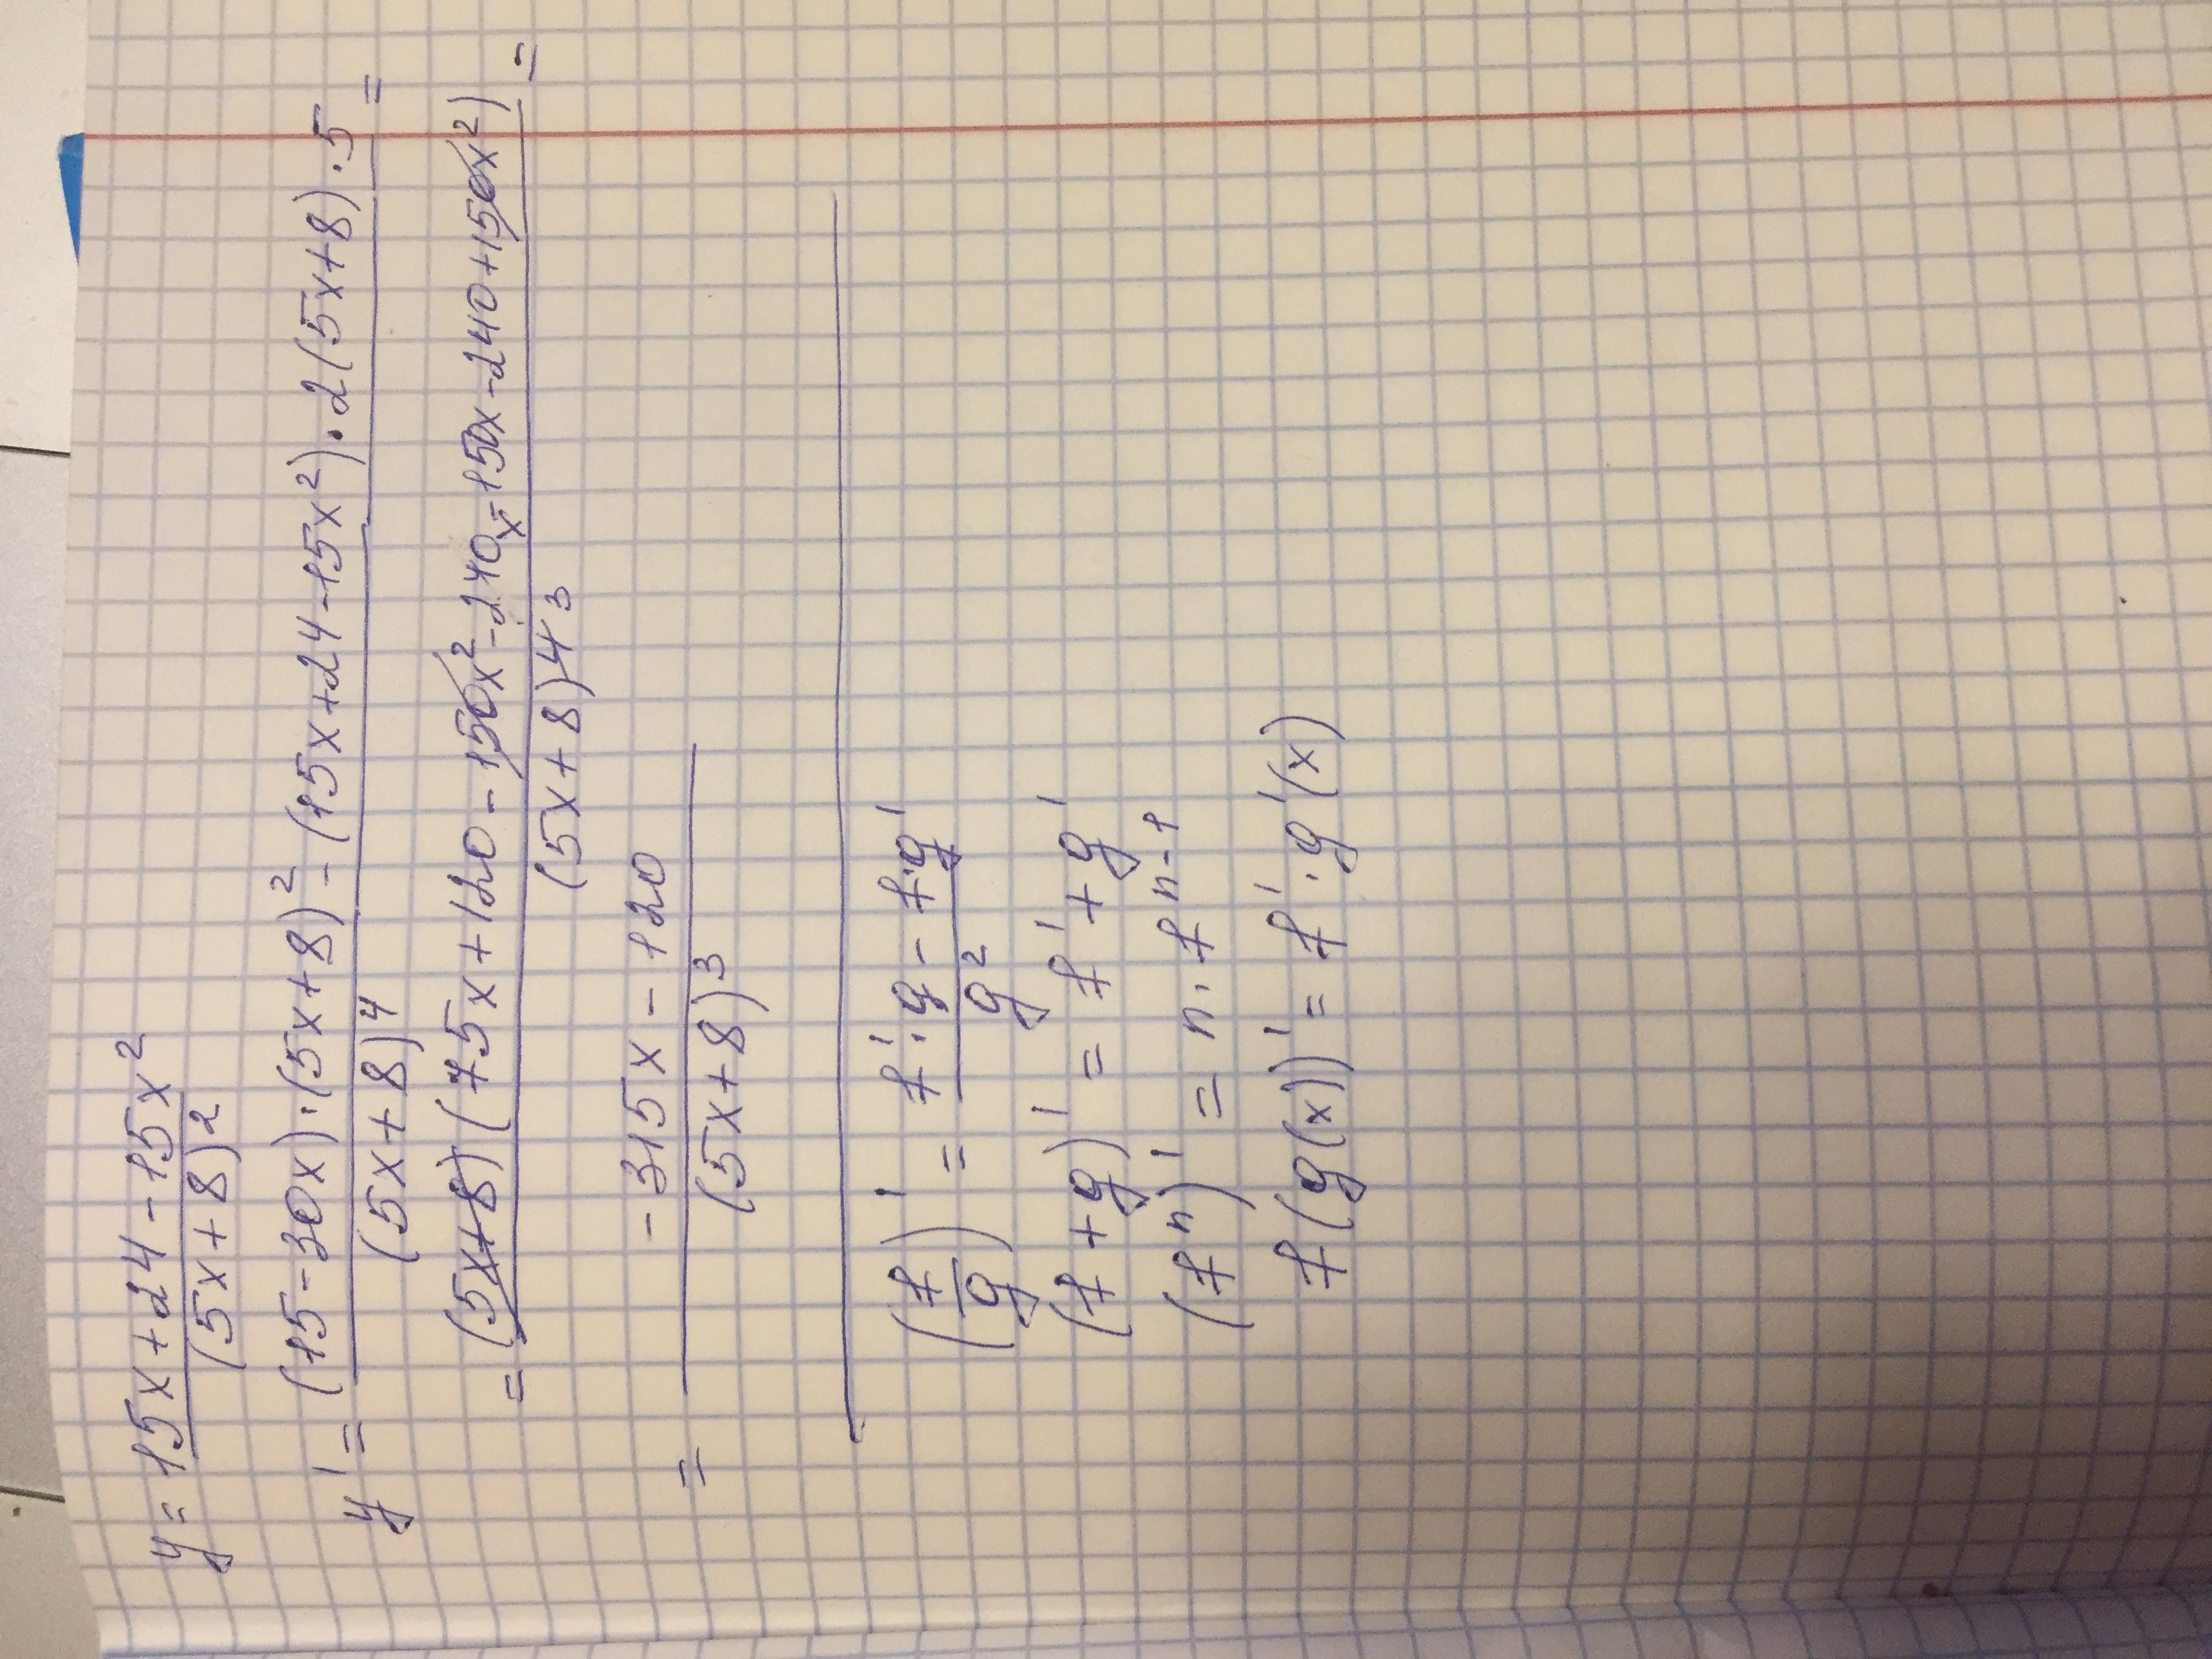 y = (15x+24-15x²)/(5x+8)²
y' = ((15-30x)·(5x+8)² - (15x+24-15x²)·2(5x+8)·5)/(5x+8)⁴ =
= ((5x+8)(75x+120-150x²-240x-150x-240+150x²))/(5x+8)⁴ ³ =
= (-315x-120)/(5x+8)³
(f/g)' = (f'·g - f·g')/g²
(f+g)' = f' + g'
(fⁿ)' = n·fⁿ⁻¹
f(g(x))' = f'·g'(x)